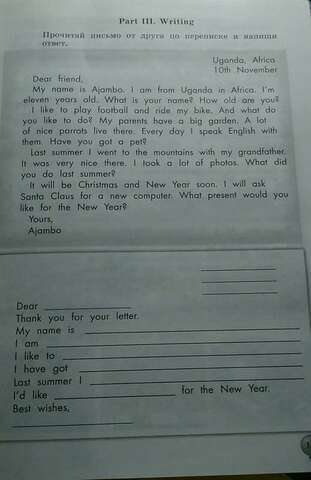 Part III. Writing
Прочитай письмо от друга по переписке и напиши
ответ.
Uganda, Africa
10th November
Dear friend,
My name is Ajambo. I am from Uganda in Africa. I'm
eleven years old. What is your name? How old are you?
I like to play football and ride my bike. And what do
you like to do? My parents have a big garden. A lot
of nice parrots live there. Every day I speak English with
them. Have you got a pet?
Last summer I went to the mountains with my grandfather.
It was very nice there. I took a lot of photos. What did
you do last summer?
It will be Christmas and New Year soon. I will ask
Santa Claus for a new computer. What present would you
like for the New Year?
Yours,
Ajambo
Dear
Thank you for your letter.
My name is
I am
I like to
I have got
Last summer I
I'd like for the New Year.
Best wishes,